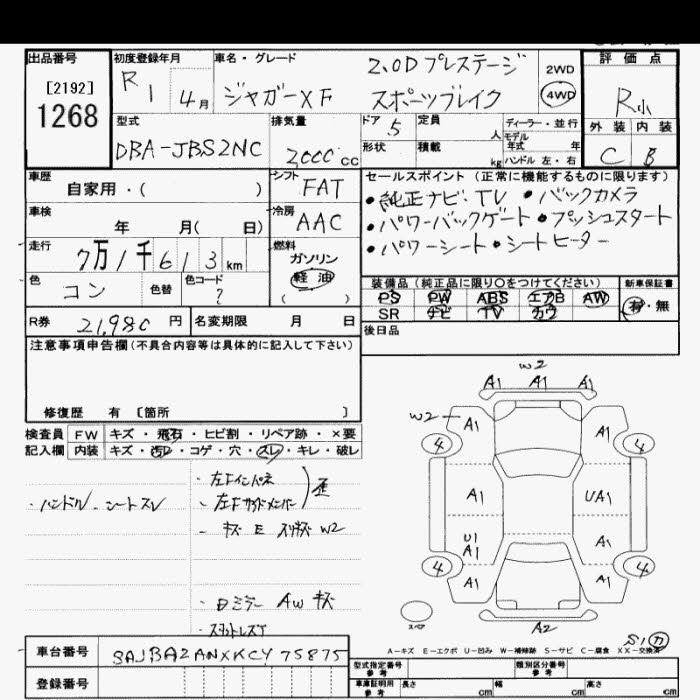 出品番号
[2192]
1268
初度登録年月
R1 4月
車名・グレード
2.0D プレステージ
ジャガーXF スポーツブレイク
2WD
4WD
評価点
R小
外装 内装
C B
型式
DBA-JBS2NC
排気量
2,000cc
ドア 5
定員 人
形状
積載 kg
ディーラー・並行
モデル年式 年
ハンドル 左・右
車歴
自家用・( )
シフト
FAT
車検
年 月( 日)
冷房
AAC
走行
7万1千613km
燃料
ガソリン
軽油
( )
色
コン
色替
色コード
?
R券 21,980円
名変期限 月 日
セールスポイント(正常に機能するものに限ります)
・純正ナビ・TV ・バックカメラ
・パワーバックゲート・プッシュスタート
・パワーシート・シートヒーター
装備品(純正品に限り○をつけてください)
PS PW ABS エアB AW
SR ナビ TV カワ
新車保証書
有・無
後日品
注意事項申告欄(不具合内容等は具体的に記入して下さい)
修復歴 有 〔箇所 〕
検査員記入欄
FW キズ・飛石・ヒビ割・リペア跡・×要
内装 キズ・汚レ・コゲ・穴・スレ・キレ・破レ
・ハンドル・シートスレ
・左Fインパネ
・左Fサイドメンバー
歪
・キズ E スリキズ W2
・Dミラー AW キズ
・スタットレスT
W2
A1 A1 A1
W2 A1 A1
4 4
A1 UA1
U1
A1 A1
4 4
A1 A1
A2
スペア
A-キズ E-エクボ U-凹み W-補修跡 S-サビ C-腐食 XX-交換済
車台番号 SAJBA2ANXKCY75875
登録番号
型式指定番号 参考
類別区分番号 参考
車庫証明用 参考 長さ cm 幅 cm 高さ cm